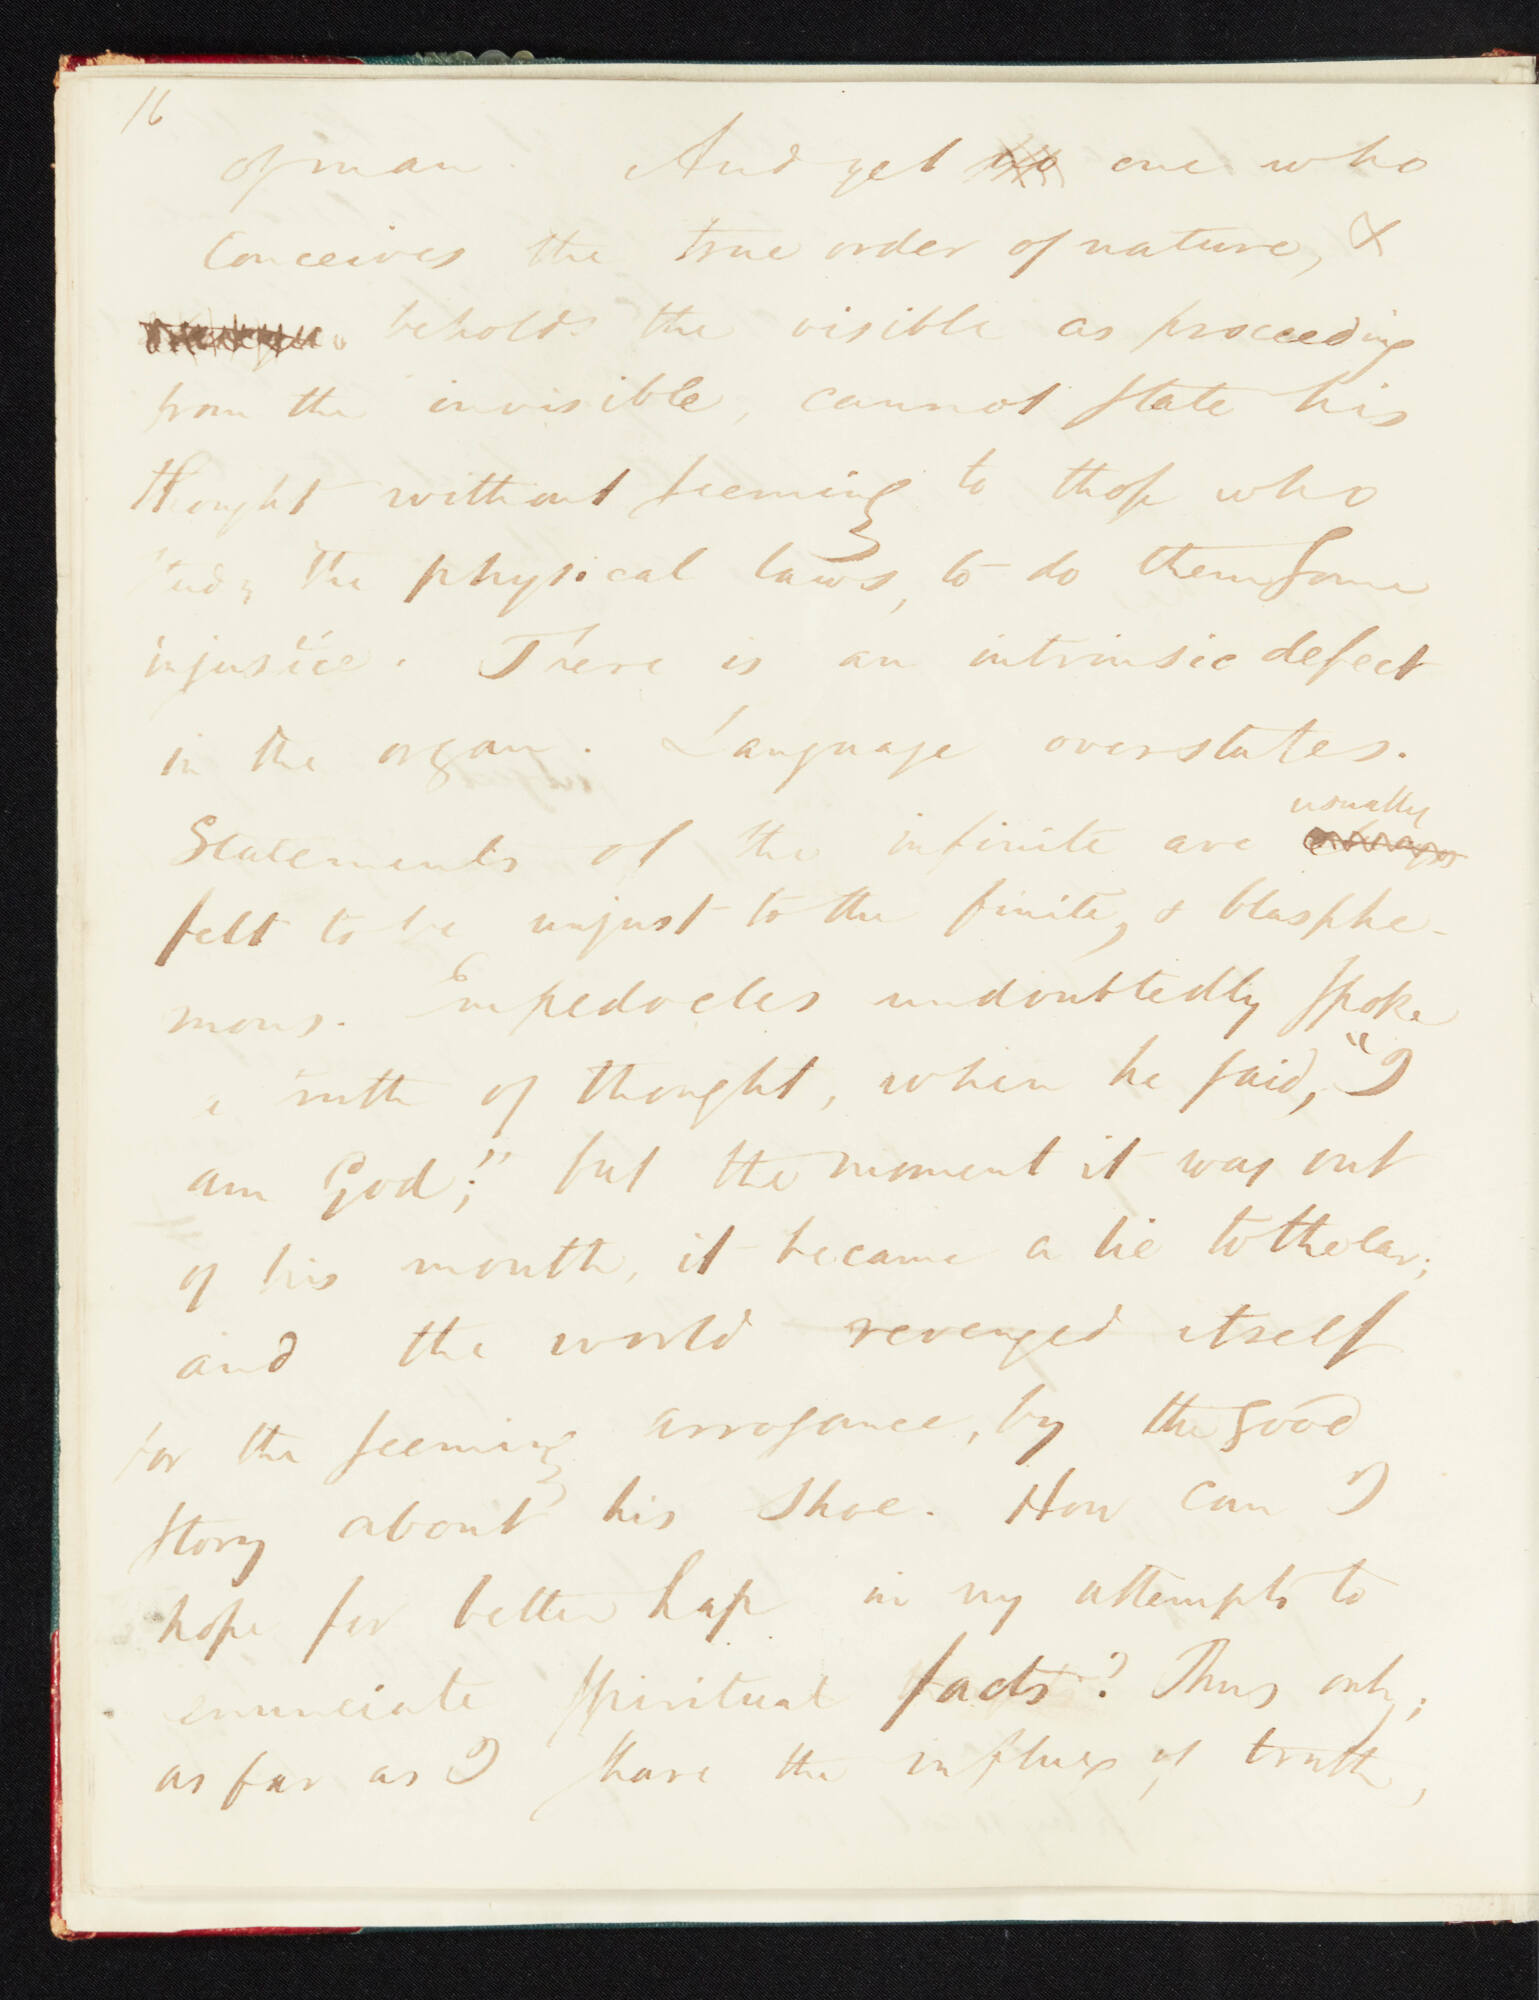 16
of man. And yet no one who
conceives the true order of nature, &
beholds the visible as proceeding
from the invisible, cannot state his
thought without seeming to those who
study the physical laws, to do them some
injustice. There is an intrinsic defect
in the organ. Language overstates.
usually
Statements of the infinite are always
felt to be unjust to the finite, & blasphe-
mous. Empedocles undoubtedly spoke
a truth of thought, when he said, "I
am God;" but the moment it was out
of his mouth, it became a lie to the ear;
and the world revenged itself
for the seeming arrogance, by the good
story about his shoe. How can I
hope for better hap in my attempts to
enunciate spiritual facts? Thus only;
as far as I share the influx of truth,